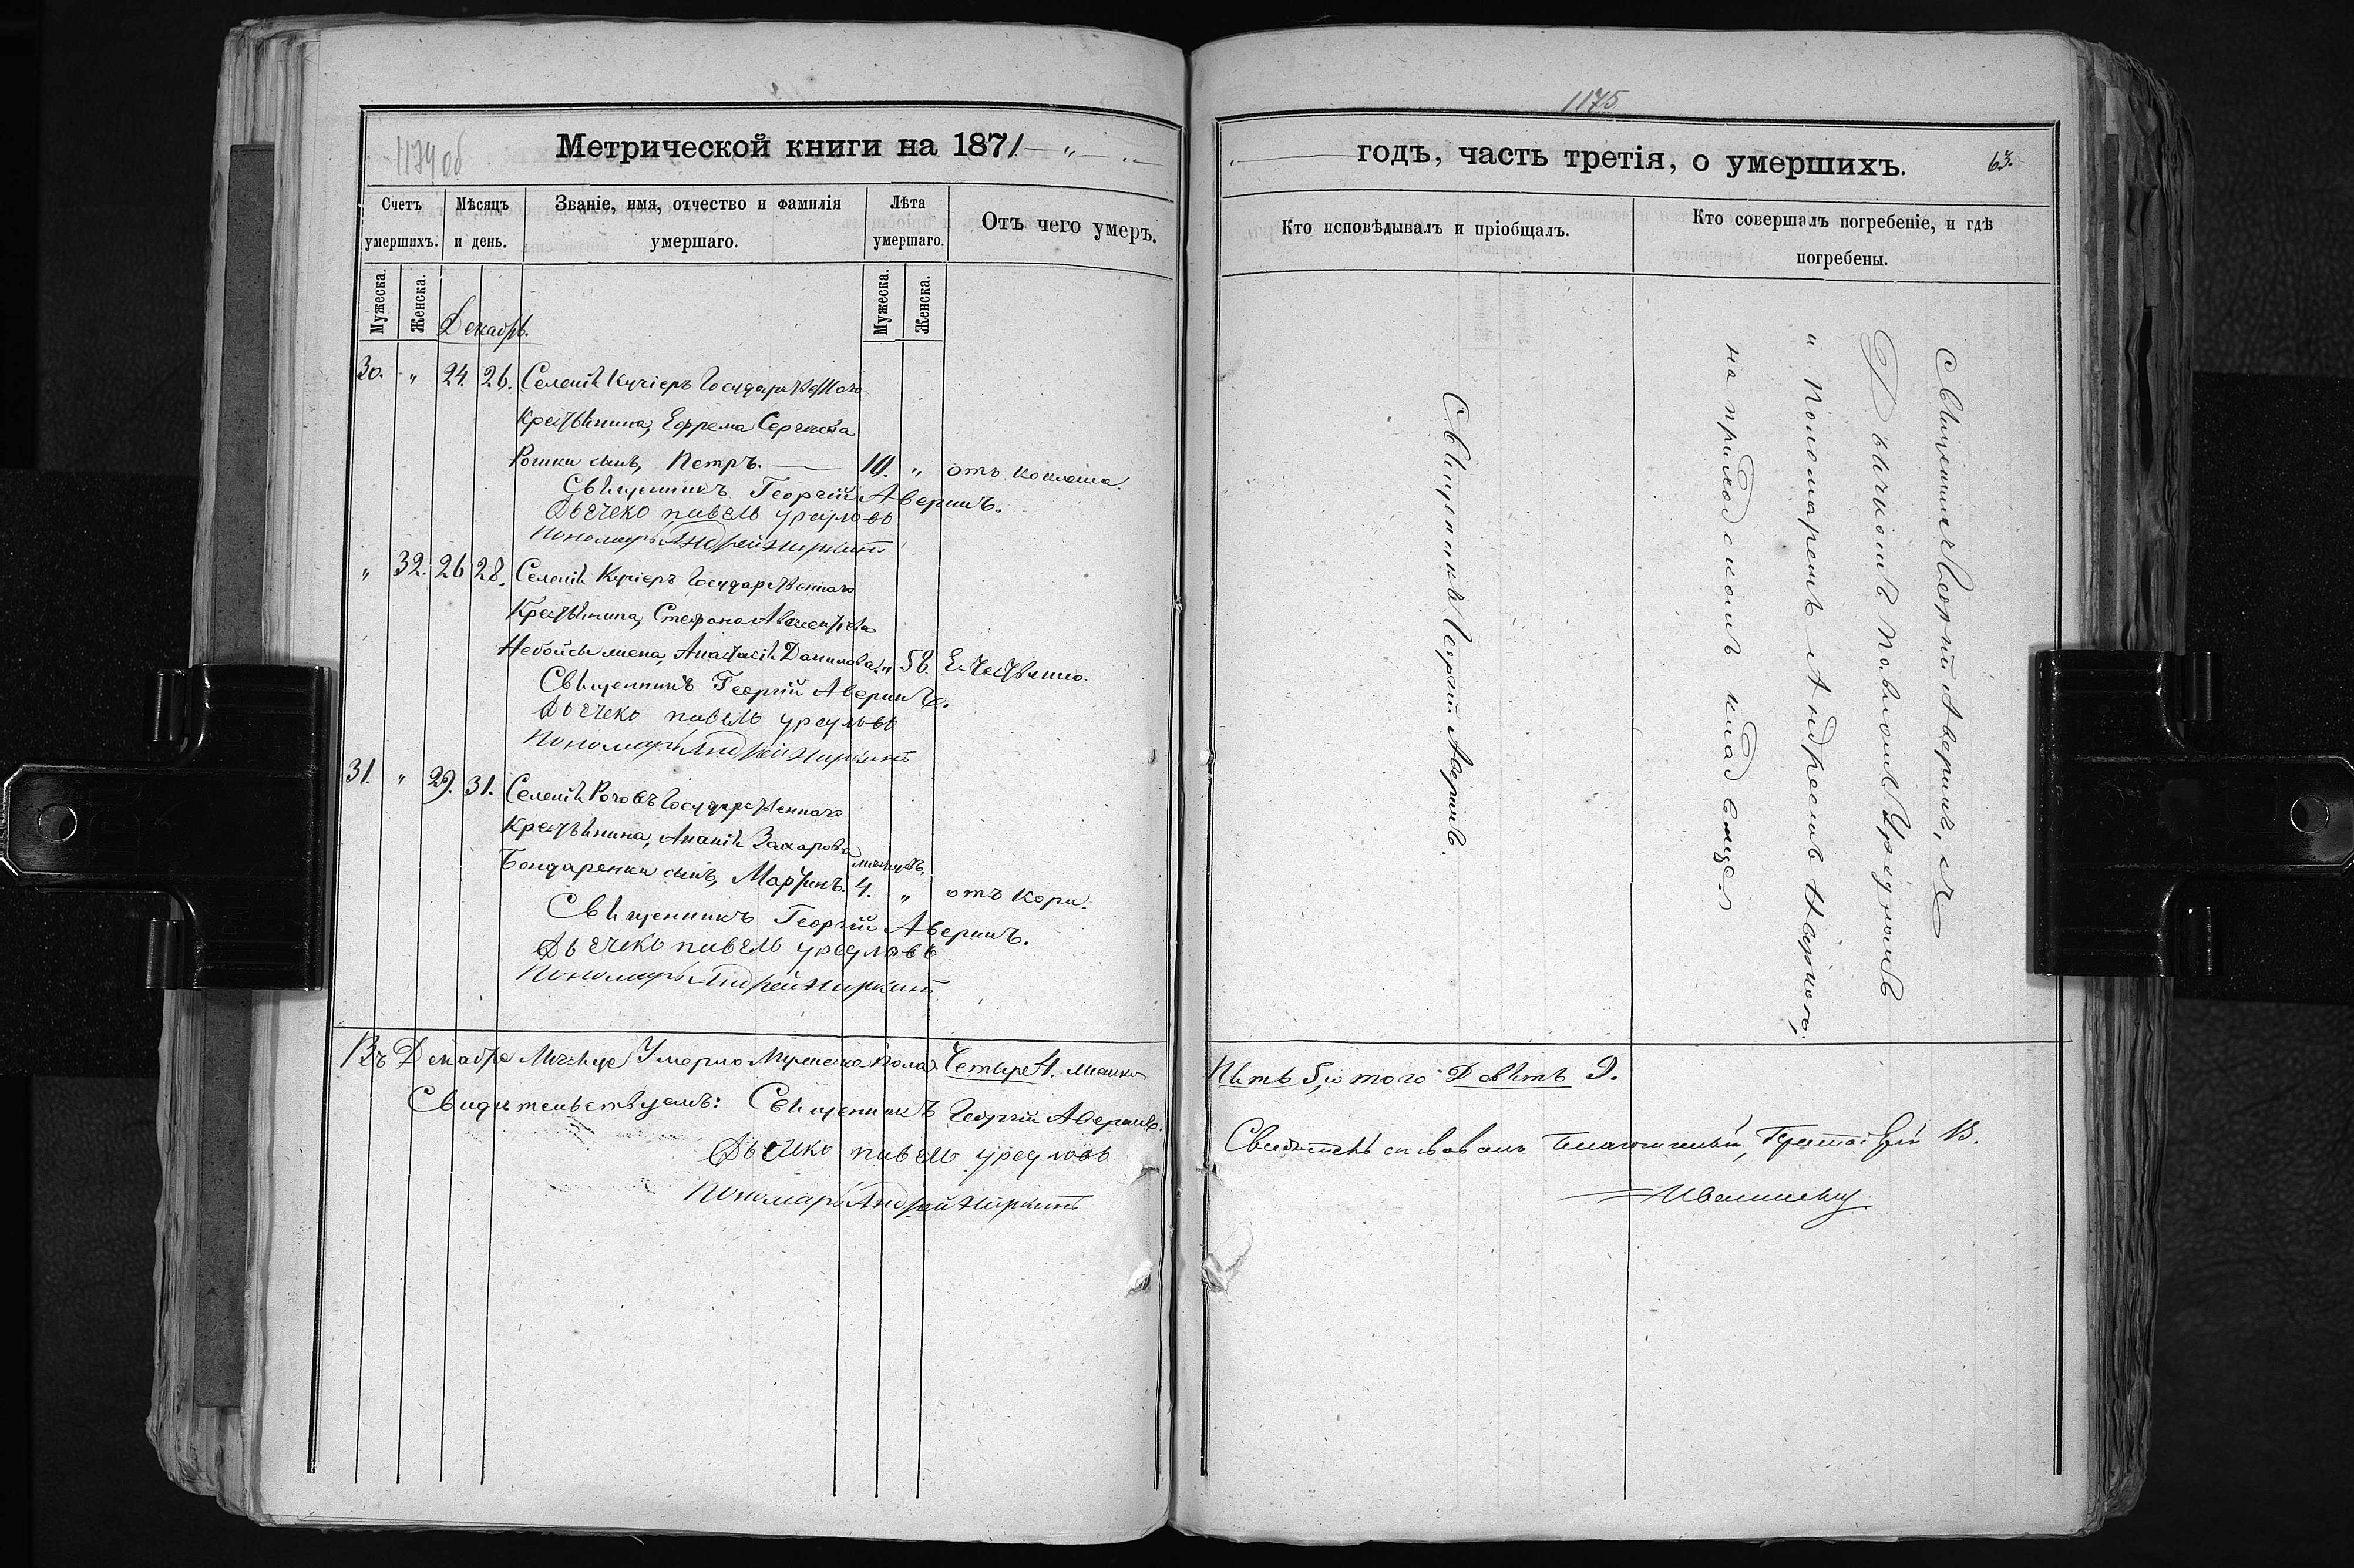 1174 об
Метрической книги на 1871 — „ — „ —
Счетъ умершихъ.
Мѣсяцъ и день.
Званіе, имя, отчество и фамилія умершаго.
Лѣта умершаго.
Отъ чего умеръ.
Мужеска.
Женска.
Мужеска.
Женска.
Декабрь.
30. „ 24. 26. Селенія Кучіеръ Государственного
Крестьянина, Ефрема Сергиева
Рошки сынъ, Петръ. — 10. „ отъ коклюша.
Священникъ Георгій Аверинъ.
Дьячекъ Павелъ Урсуловъ
Пономарь Андрей
„ 32. 26 28. Селенія Кучіеръ Государственнаго
Крестьянина, Стефана
жена, Анастасія Данилова. „ 58. Естественно.
Священникъ Георгій Аверинъ.
Дьячекъ Павелъ Урсуловъ
Пономарь Андрей
31. „ 29. 31. Селенія Роговъ Государственнаго
Крестьянина, Ананія Захарова
мѣсяцовъ
Бондаренки сынъ, Мартинъ. 4. „ отъ кори.
Священникъ Георгій Аверинъ.
Дьячекъ Павелъ Урсуловъ
Пономарь Андрей
Въ Декабрѣ Мѣсяце Умерло Мужеска пола Четыре 4. женска
Свидѣтельствуемъ: Священникъ Георгій Аверинъ.
Дьячекъ Павелъ Урсуловъ
Пономарь Андрей
1175
„ — годъ, часть третія, о умершихъ.
63.
Кто исповѣдывалъ и пріобщалъ.
Кто совершалъ погребеніе, и гдѣ погребены.
Священникъ Георгій Аверинъ.
Священникъ Георгій Аверинъ, съ
Дьячкомъ Павломъ Урсуломъ
и Пономаремъ Андреемъ
на приходскомъ кладбище
Пять 5, итого Девять 9.
Благочинный, В.